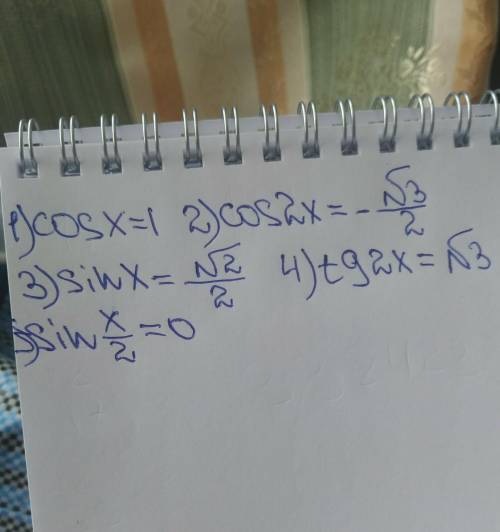 1) cos x = 1 2) cos 2x = - √3/2
3) sin x = √2/2 4) tg 2x = √3
5) sin x/2 = 0